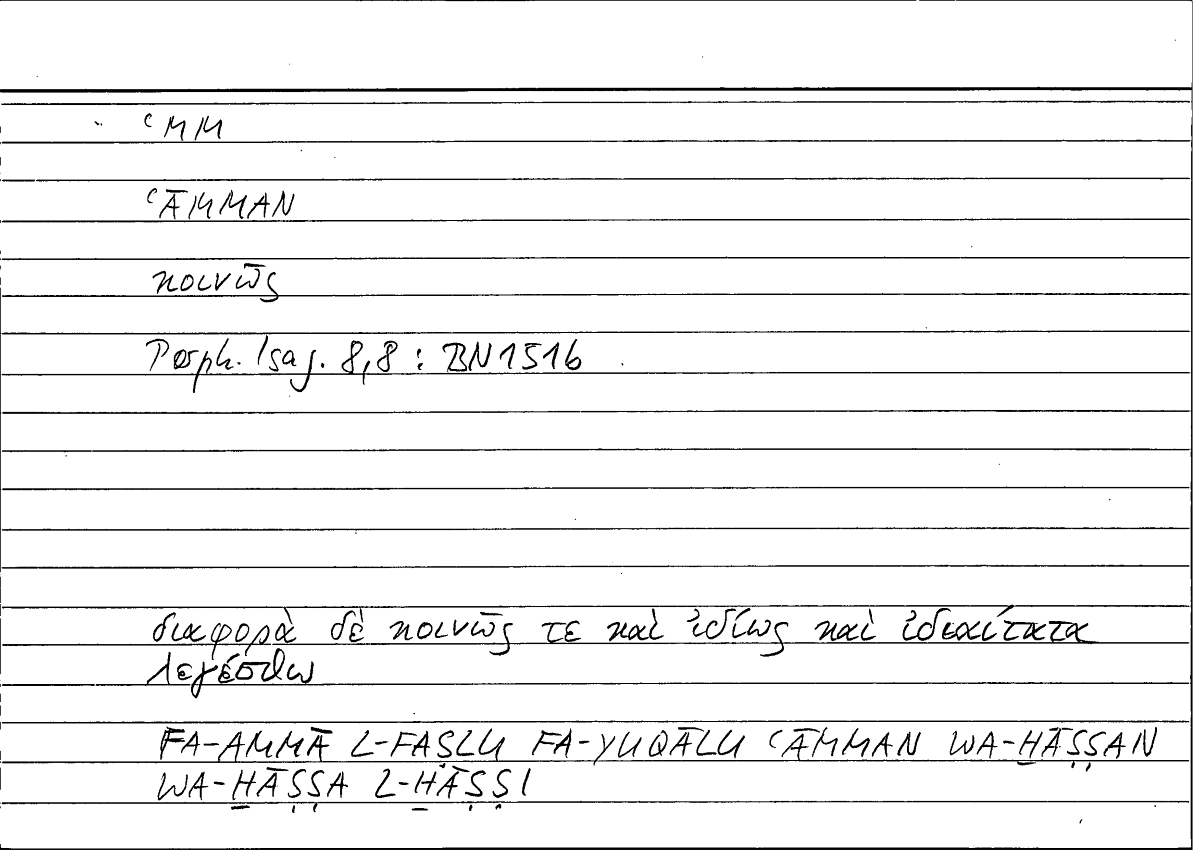 ʿMM
ʿĀMMAN
κοινῶς
Porph. Isag. 8,8 : BN1516
διαφορὰ δὲ κοινῶς τε καὶ ἰδίως καὶ ἰδιαίτατα
λεγέσθω
FA-AMMĀ L-FAṢLU FA-YUQĀLU ʿĀMMAN WA-ḪĀṢṢAN
WA-ḪĀṢṢA L-ḪĀṢṢI